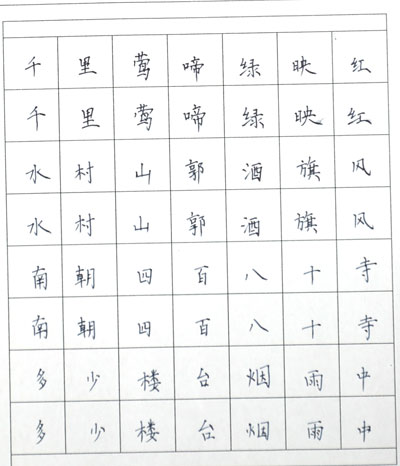 千里莺啼绿映红
千里莺啼绿映红
水村山郭酒旗风
水村山郭酒旗风
南朝四百八十寺
南朝四百八十寺
多少楼台烟雨中
多少楼台烟雨中